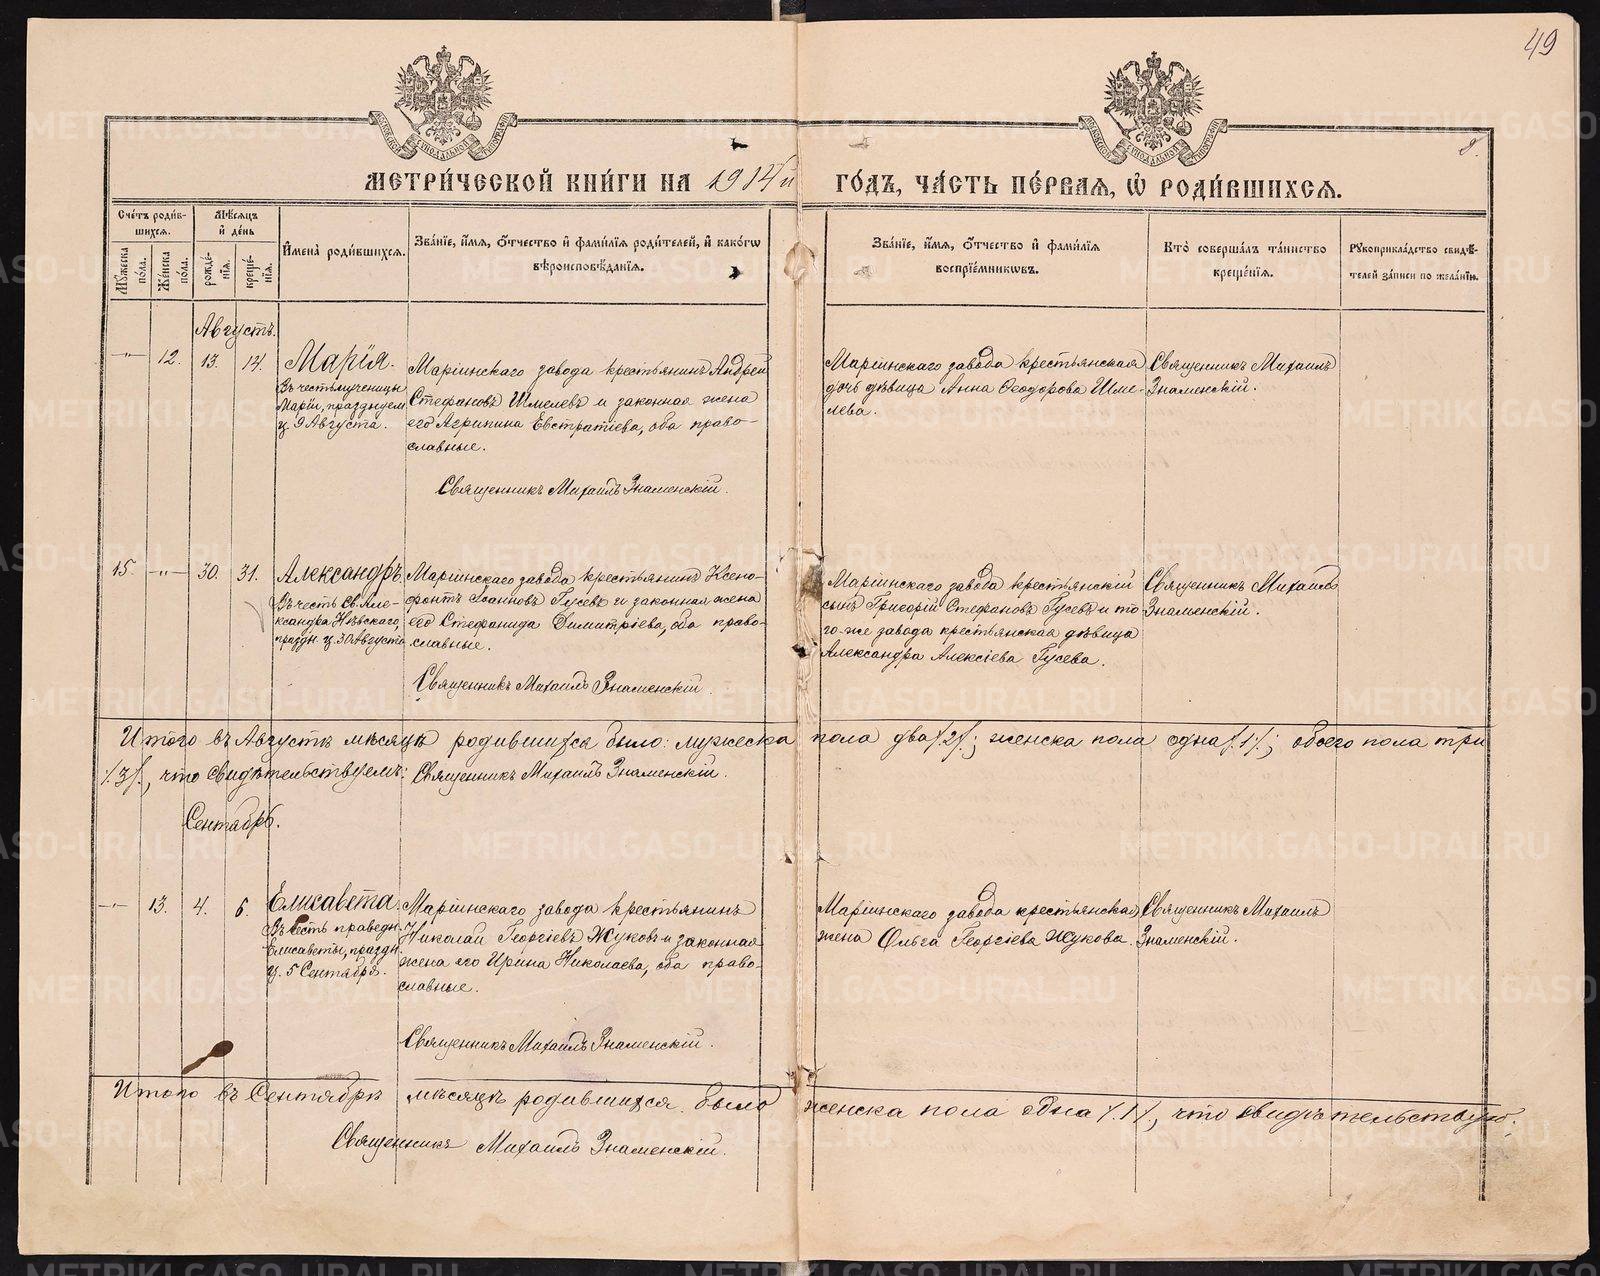 49
8.
МЕТРИЧЕСКОЙ КНИГИ НА 1914й ГОДЪ, ЧАСТЬ ПЕРВАЯ, Ѡ РОДИВШИХСЯ.
Счетъ родив-
шихся.
Мѣсяцъ
и день
Мужеска
пола.
Женска
пола.
рожде-
нія.
креще-
нія.
Имена родившихся.
Званіе, имя, отчество и фамилія родителей, и какогѡ
вѣроисповѣданія.
Званіе, имя, отчество и фамилія
воспріемникѡвъ.
Кто совершалъ таинство
крещенія.
Рукоприкладство свидѣ-
телей записи по желанію.
Августъ.
-"- 12. 13. 14.
Марія.
Въ честь мученицы
Маріи, празднуем.
ц. 9 Августа.
Маріинскаго завода крестьянинъ Андрей
Стефановъ Шмелевъ и законная жена
его Агрипина Евстратіева, оба право-
славные.
Священникъ Михаилъ Знаменскій.
Маріинскаго завода крестьянская
дочь дѣвица Анна Ѳеодорова Шме-
лева.
Священникъ Михаилъ
Знаменскій.
15. -"- 30. 31.
Александръ.
Въ честь Св. Але-
ксандра Невскаго,
праздн. ц. 30 Августа
Маріинскаго завода крестьянинъ Ксено-
фонтъ Іоанновъ Гусевъ и законная жена
его Стефанида Димитріева, оба право-
славные.
Священникъ Михаилъ Знаменскій.
Маріинскаго завода крестьянскій
сынъ Григорій Стефановъ Гусевъ и то
го-же завода крестьянская дѣвица
Александра Алексіева Гусева.
Священникъ Михаилъ
Знаменскій.
Итого въ Августѣ мѣсяцѣ родившихся было: мужеска пола два /.2/.; женска пола одна /.1/.; обоего пола три
/.3/., что свидѣтельствуемъ: Священникъ Михаилъ Знаменскій.
Сентябрь.
-"- 13. 4. 6.
Елисавета.
Въ честь праведн.
Елисаветы, праздн.
ц. 5 Сентября.
Маріинскаго завода крестьянинъ
Николай Георгіевъ Жуковъ и законная
жена его Ирина Николаева, оба право-
славные.
Священникъ Михаилъ Знаменскій.
Маріинскаго завода крестьянская
жена Ольга Георгіева Жукова.
Священникъ Михаилъ
Знаменскій.
Итого въ Сентябрѣ мѣсяцѣ родившихся было женска пола одна /.1/., что свидѣтельствую:
Священникъ Михаилъ Знаменскій.
METRIKI.GASO-URAL.RU